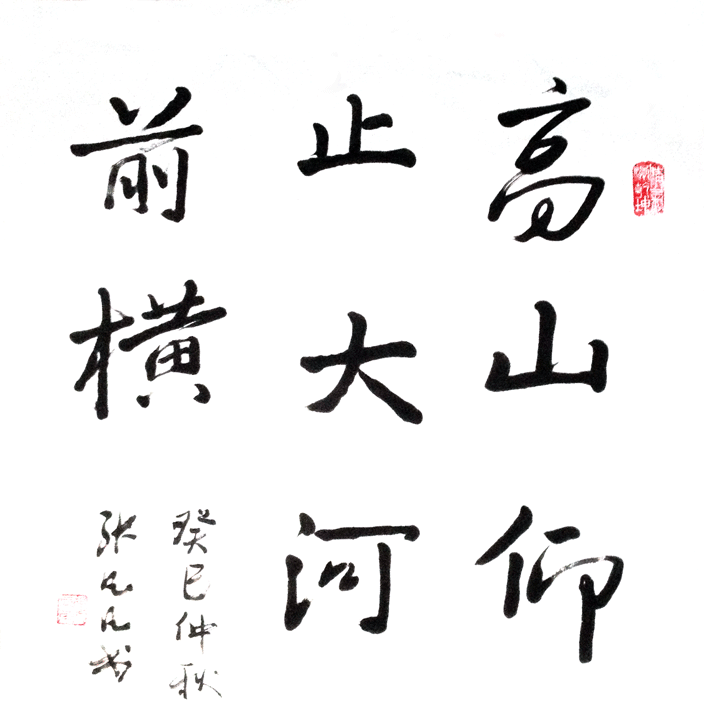 高山仰
止大河
前横
癸巳仲秋
张书